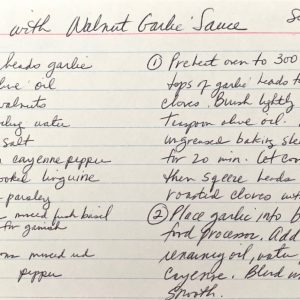 with Walnut Garlic Sauce
heads garlic
oil
walnuts
water
salt
cayenne pepper
linguine
parsley
minced fresh basil
for garnish
minced red
pepper
① Preheat oven to 300
tops of garlic heads t
cloves. Brush lightly
Teaspoon olive oil.
ungreased baking shee
for 20 min. Let co
then sqeeze heads
roasted cloves
② Place garlic into b
food processor. Add
remaining oil, water
cayenne. Blend
smooth.